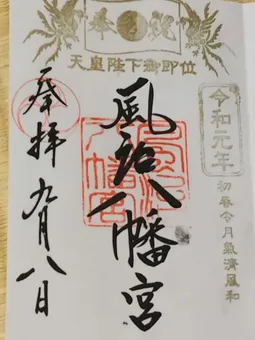 奉祝
天皇陛下御即位
令和元年
初春令月氣淸風和
風治八幡宮
奉拝
九月八日